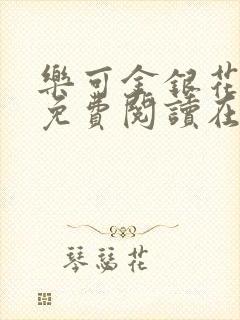 樂可金銀花
免費閱讀在
琴瑟花